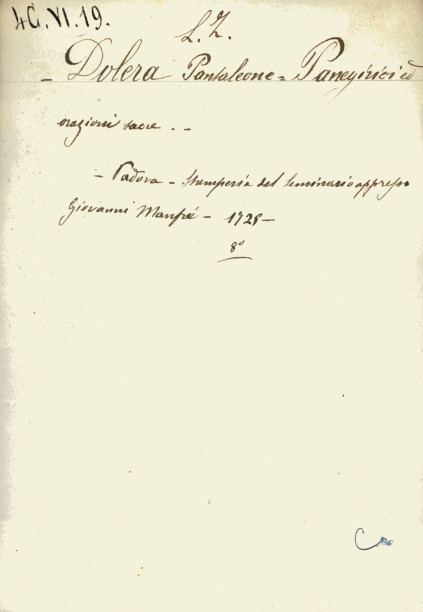 4C.VI.19.
L. Z.
- Dolera Pantaleone = Panegirici ed
orazioni sacre. --
- Padova - Stamperia del Seminario appresso
Giovanni Manfrè - 1728 -
8°